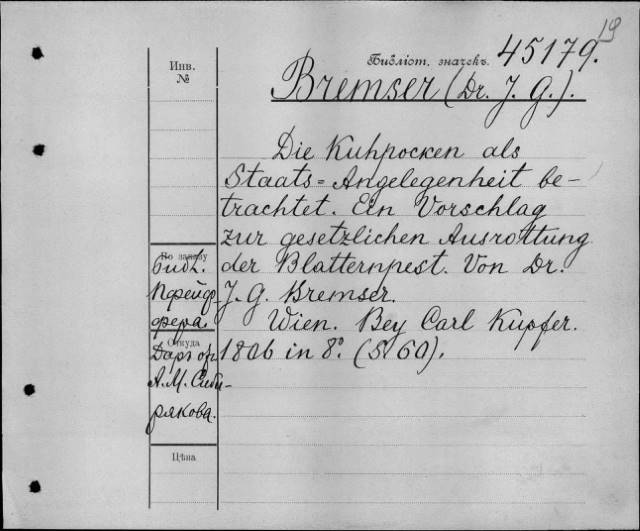 19
Библіот. значекъ 45179.
Инв.
№
Bremser (Dr. J. G.).
Die Kuhpocken als
Staats=Angelegenheit be-
trachtet. Ein Vorschlag
zur gesetzlichen Ausrottung
der Blatternpest. Von Dr.
J. G. Bremser.
Wien. Bey Carl Kupfer.
1806 in 8º. (S. 60).
По заказу
Библ.
Пфейф-
фера.
Откуда
Даръ от
А. М. Сиби-
рякова.
Цѣна